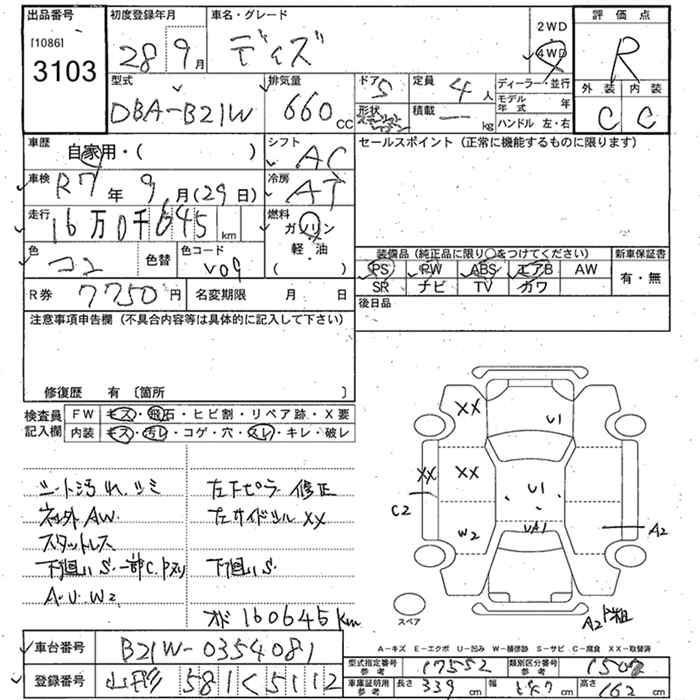 出品番号
[1086]
3103
初度登録年月
28年9月
車名・グレード
ディズ
2WD
4WD
評価点
R
型式
DBA-B21W
排気量
660cc
ドア
5
形状
定員
4人
積載
kg
ディーラー・並行
モデル年式 年
ハンドル 左・右
外装 内装
C C
車歴
自家用・( )
シフト
AC
セールスポイント (正常に機能するものに限ります)
車検
R7年9月(29日)
冷房
AT
走行
16万0千645km
燃料
ガソリン
軽・油
( )
色
コン
色替
色コード
V09
装備品 (純正品に限り〇をつけてください)
新車保証書
PS PW ABS エアB AW
SR ナビ TV カワ
有・無
R券
7750円
名変期限 月 日
後日品
注意事項申告欄 (不具合内容等は具体的に記入して下さい)
修復歴 有 〔箇所 〕
検査員
記入欄
FW キズ・飛石・ヒビ割・リペア跡・X要
内装 キズ・汚レ・コゲ・穴・スレ・キレ・破レ
シート汚れ、シミ
左下ピラ 修正
社外AW
左サイドシル XX
スタットレス
下廻りS、一部C、Pヌリ
下廻りS
A・U・W2
オド 160645km
XX
U1
XX
XX
U1
C2
W2
UA1
A2
A2
スペア
A-キズ E-エクボ U-凹み W-補修跡 S-サビ C-腐食 XX-取替済
車台番号
B21W-0354081
登録番号
山形581く5112
型式指定番号
参考
17552
類別区分番号
参考
車庫証明用
参考
長さ 339cm
幅 cm
高さ 162cm